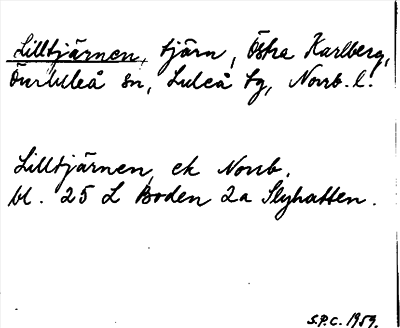 Lilltjärnen, tjärn, Östra Karlberg,
Överluleå sn, Luleå tg, Norrb. l.
Lilltjärnen, ek Norrb.
bl. 25 L Boden 2a Slyhatten.
S.P.C. 1959.